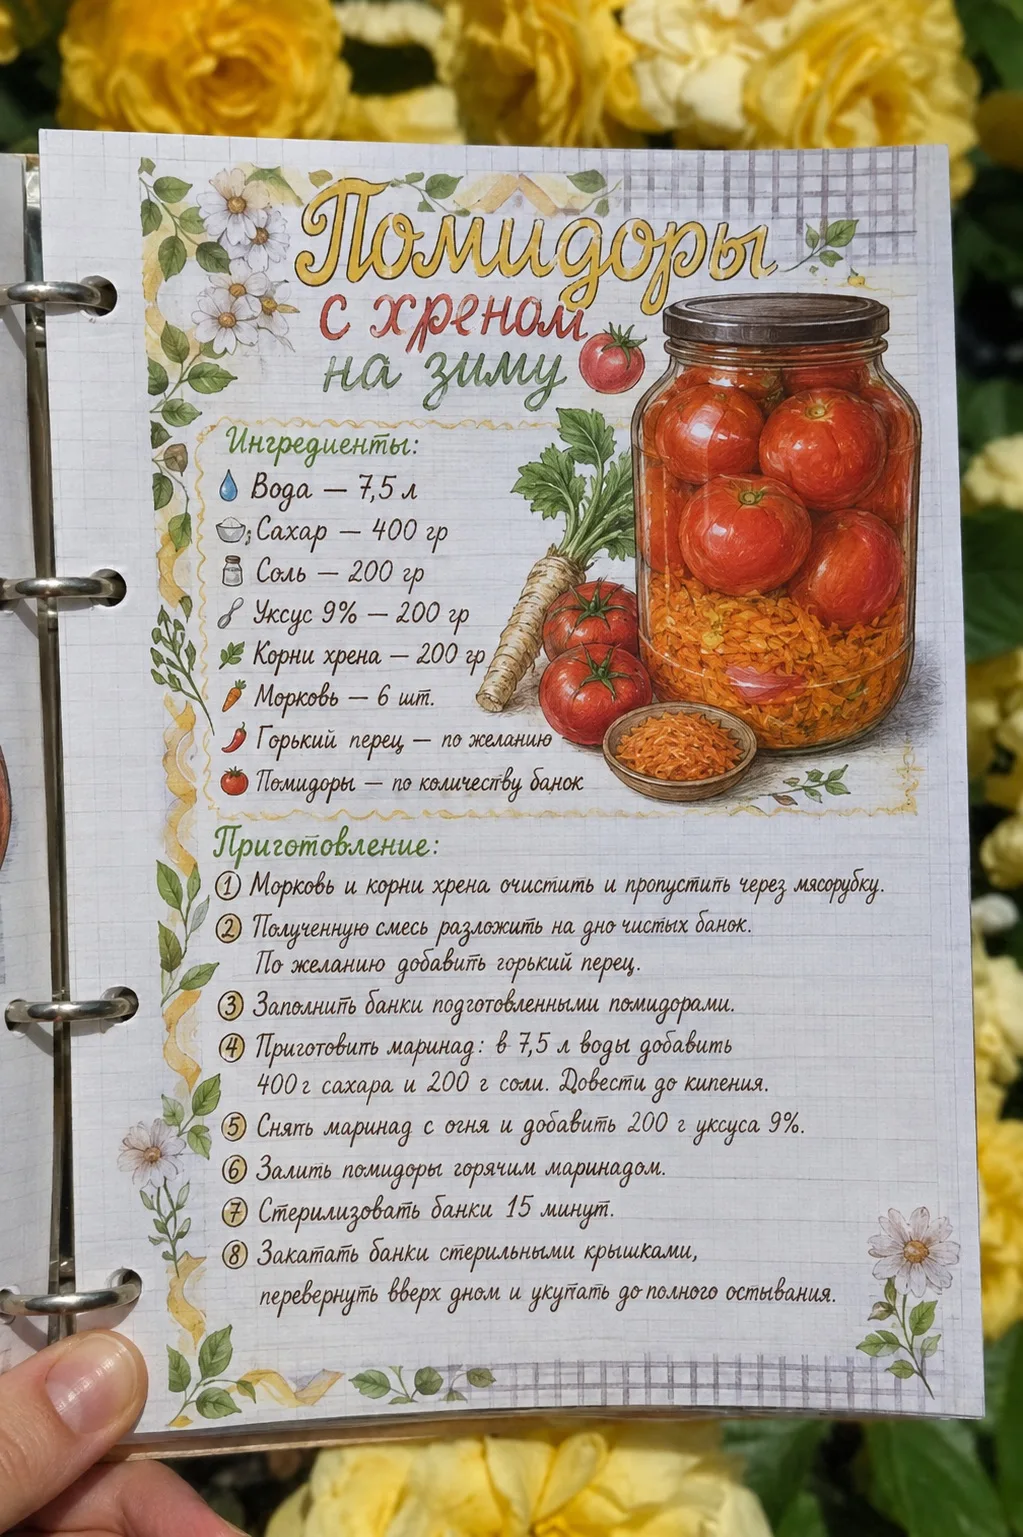 Помидоры
с хреном
на зиму
Ингредиенты:
Вода — 7,5 л
Сахар — 400 гр
Соль — 200 гр
Уксус 9% — 200 гр
Корни хрена — 200 гр
Морковь — 6 шт.
Горький перец — по желанию
Помидоры — по количеству банок
Приготовление:
1 Морковь и корни хрена очистить и пропустить через мясорубку.
2 Полученную смесь разложить на дно чистых банок.
По желанию добавить горький перец.
3 Заполнить банки подготовленными помидорами.
4 Приготовить маринад: в 7,5 л воды добавить
400 г сахара и 200 г соли. Довести до кипения.
5 Снять маринад с огня и добавить 200 г уксуса 9%.
6 Залить помидоры горячим маринадом.
7 Стерилизовать банки 15 минут.
8 Закатать банки стерильными крышками,
перевернуть вверх дном и укутать до полного остывания.